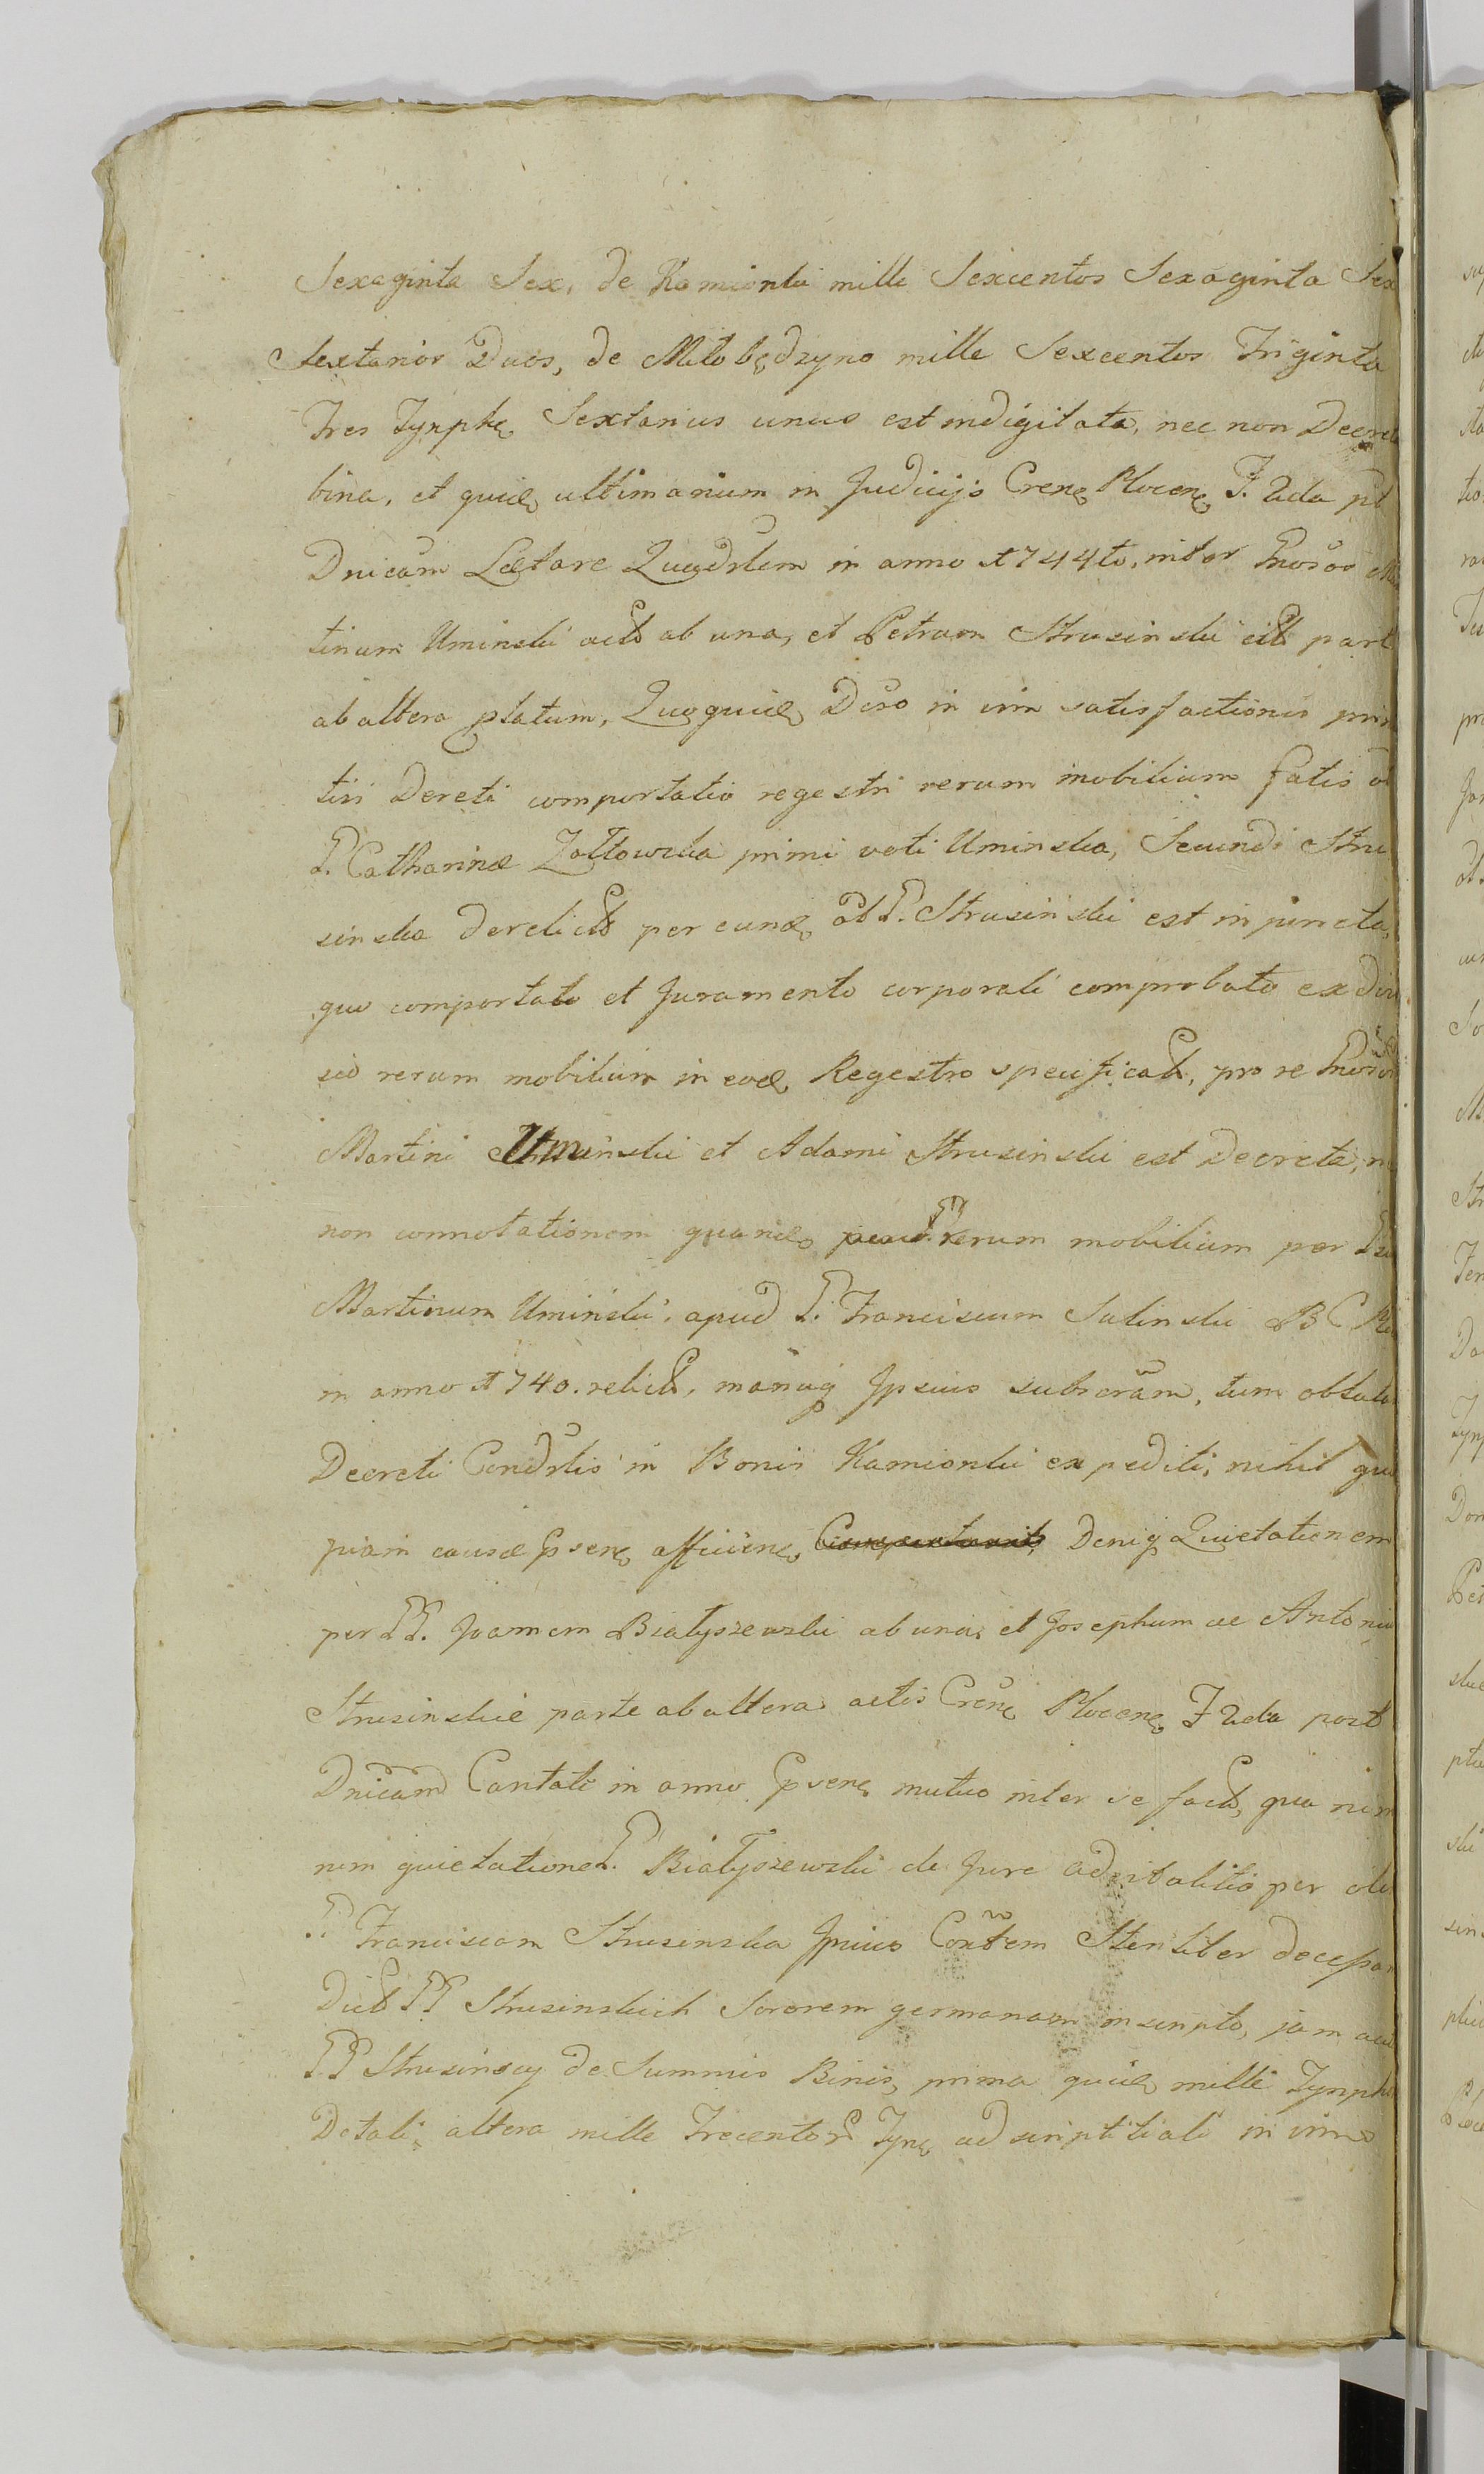 Sexaginta Sex, de Kamionki mille Sexcentos Sexaginta Sex
Sextarior Duos, de Miłobędzyno mille Sexcentos Triginta
Tres Tynphę Sextarius unus est indigitata, nec non Decreta
bina, et quidę ultimarium in Judicijs Crenę Plocenę F. 2da pt
Dnicam Lætare Quadrlem in anno 1744to, inter Gnosos Mar
tinum Uminski actē ab una, et Petrum Strusinski citē part
ab altera platum, Quoquidę Dcro in vim satisfactionis prio
tivi Dereti comportatio regestri rerum mobilium fatis oi
P. Catharinæ Zołtowska primi voti Uminska, Secundi Stru
sinska derelictē per eundę olP. Strusinski est injuncta,
quo comportato et Juramento corporali comprobato ex divi
sio rerum mobilium in eodę Regestro specificatē, pro re Gnosor
Martini Uminski et Adami Strusinski est Decreta, n
non connotationem quandę rerum mobilium per
Martinum Uminski, apud P. Franciscum Sulinski B C
in anno 1740. relictē, manuq Ipsius subscrām, tum oblata
Decreti Condrlis in Bonis Kamionki expediti, nihil qu
piam causæ psenę afficienę, Deniq Quietationem
per PP. Joannem Białyszewski ab una, et Josephum ac Antoniu
Strusinskie parte ab altera actis Crenę Plocenę F 2da post
Dnicam Cantate in anno psenę mutuo inter se factē, qua nim
rum quietatione P. Białyszewski de Jure advitalitio per olim
P Franciscam Strusinska Ipsius Contem Sterliter decessa
dictē PP Strusinskich Sororem germanam inscripto, jam
PP Strusinscy de Summis Binis, prima quidę mille Tynph
Dotali, altera mille Trecentor Tynę adscriptitiali in vim